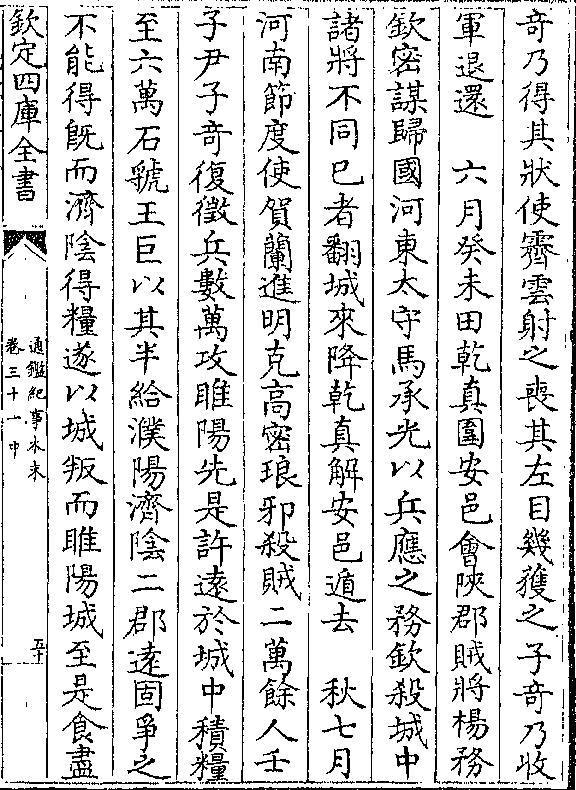 奇乃得其狀使霽雲射之喪其左目幾獲之子奇乃收
軍退還　六月癸未田乾真圍安邑會陜郡賊將楊務
欽密謀歸國河東太守馬承光以兵應之務欽殺城中
諸將不同已者翻城來降乾真解安邑遁去　秋七月
河南節度使賀蘭進明克高密琅邪殺賊二萬餘人壬
子尹子奇復徵兵數萬攻睢陽先是許遠於城中積糧
至六萬石虢王巨以其半給濮陽濟陰二郡遠固爭之
不能得既而濟陰得糧遂以城叛而睢陽城至是食盡
欽定四庫全書
通鑑紀事本末
卷三十一中
五十